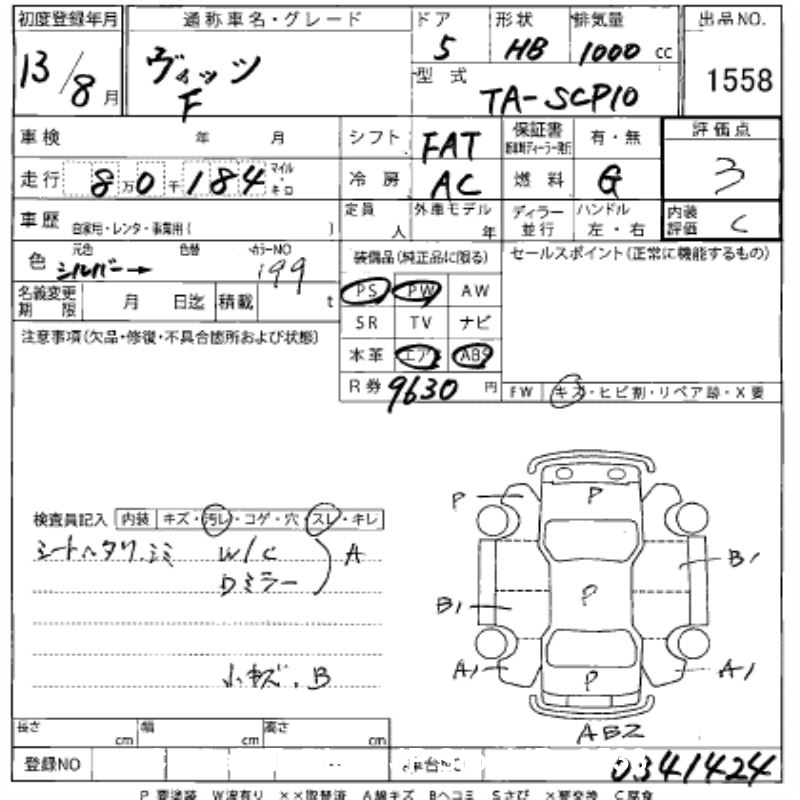 初度登録年月 通称車名・グレード ドア 形状 排気量 出品NO.
13/8月 ヴィッツ 5 HB 1000 cc 1558
F 型式 TA-SCP10
車検 年 月 シフト FAT 保証書 有・無 評価点
走行 8万0千184 マイル・キロ 冷房 AC 燃料 G 3
車歴 自家用・レンタ・事業用( ) 定員 人 外車モデル 年 ディラー並行 ハンドル 左・右 内装評価 C
色 元色 シルバー→ 色替 カラーNO 199 装備品(純正品に限る) セールスポイント(正常に機能するもの)
名義変更期限 月 日迄 積載 t PS PW AW
注意事項(欠品・修復・不具合箇所および状態) SR TV ナビ
本革 エア ABS
R券 9630 円 FW キズ・ヒビ割・リペア跡・X要
検査員記入 内装 キズ・汚レ・コゲ・穴・スレ・キレ
シートヘタリ、シミ W/C A
Dミラー
小キズ、B
P P
B1
P
B1
A1 P A1
AB2
長さ cm 幅 cm 高さ cm
登録NO 車台NO 0341424
P 要塗装 W波有り ××取替済 A線キズ Bヘコミ Sさび ×要交換 C腐食